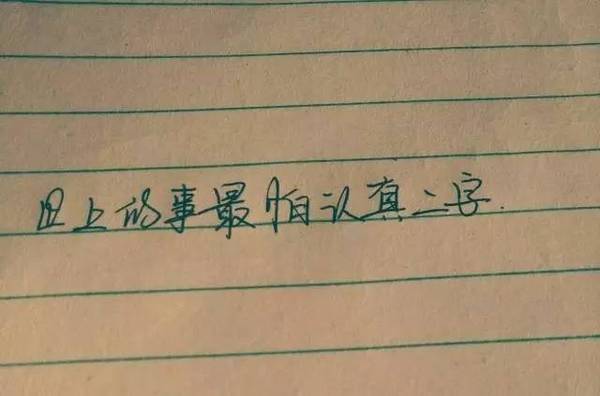 世上的事最怕认真二字.